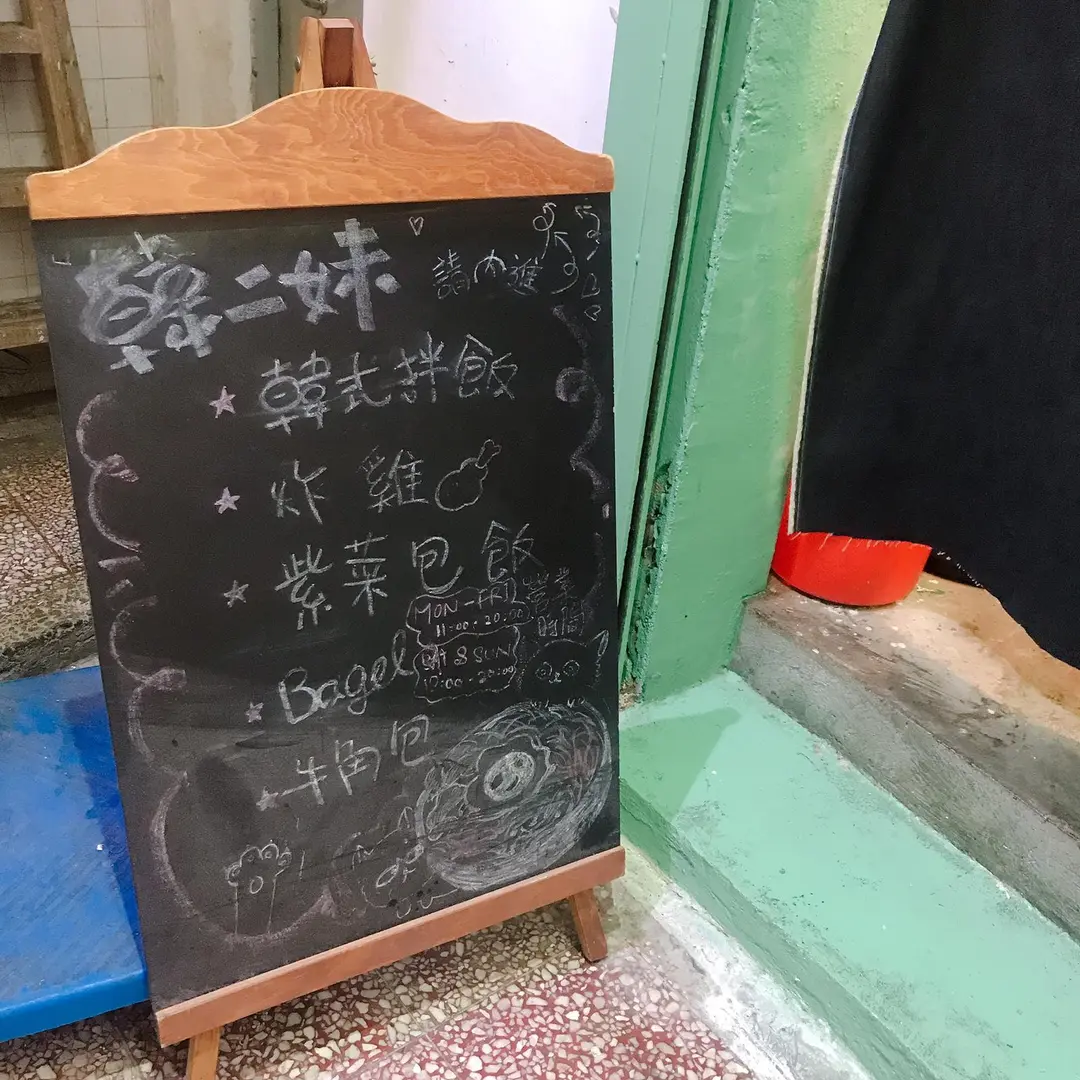 蔡二妹
請內進
韓式拌飯
炸雞
紫菜包飯
營業時間
MON - FRI
11:00 - 20:00
SAT & SUN
12:00 - 20:00
Bagel
牛角包